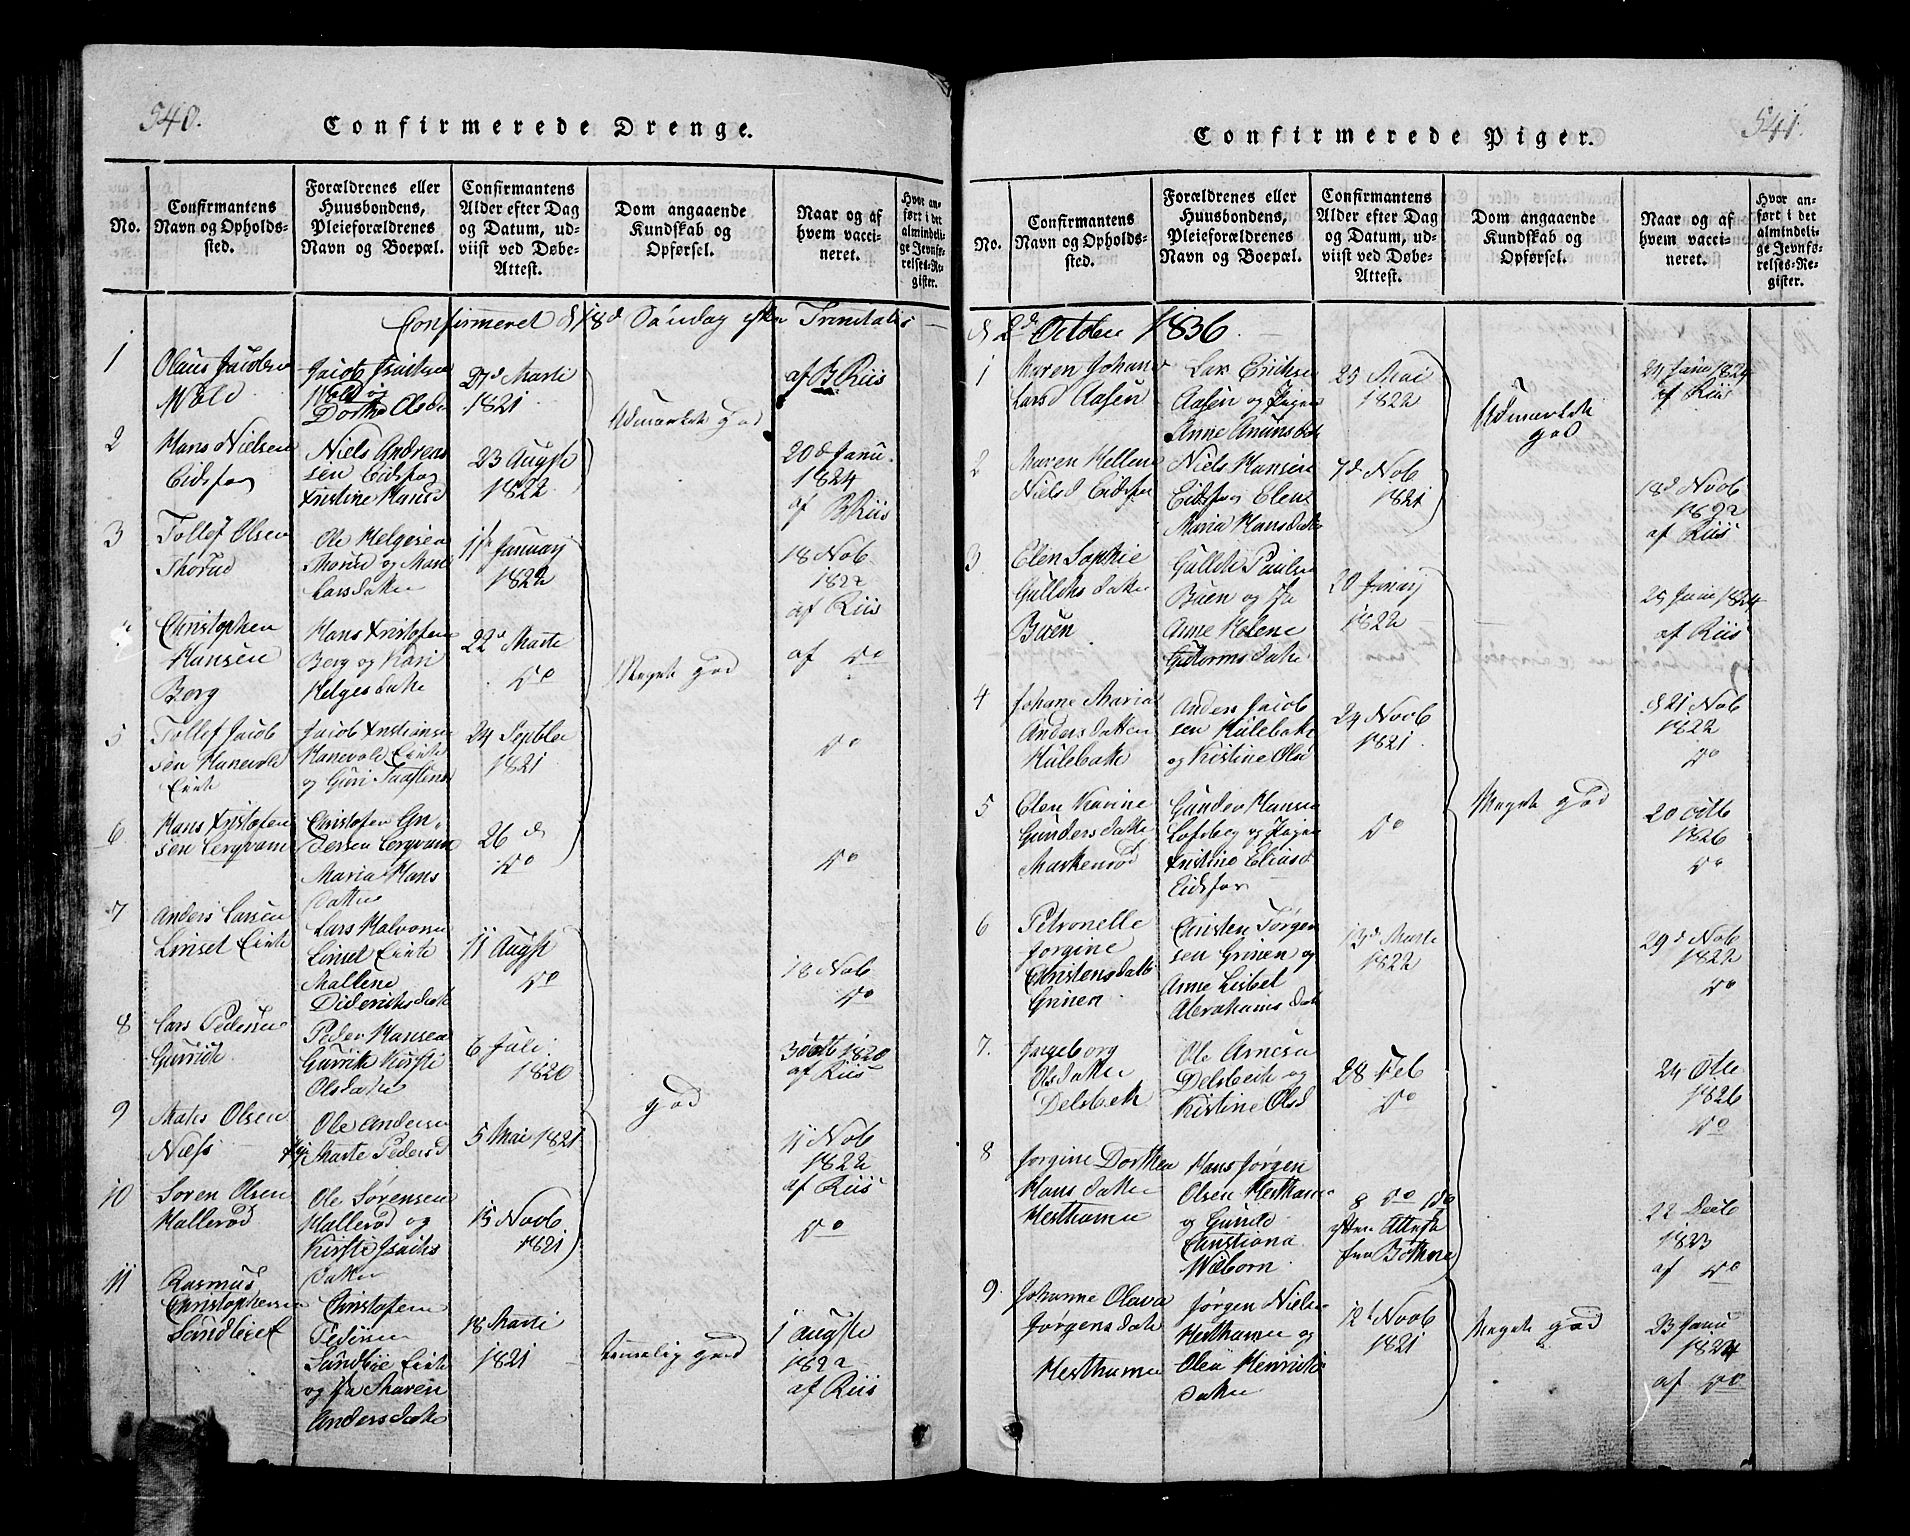 540.
Confirmerede Drenge.
No.
Confirmantens
Navn og Opholds-
sted.
Forældrenes eller
Huusbondens,
Pleieforældrenes
Navn og Boepæl.
Confirmantens
Alder efter Dag
og Datum, ud-
viist ved Døbe-
Attest.
Dom angaaende
Kundskab og
Opførsel.
Naar og af
hvem vacci-
neret.
Hvor an-
ført i det
almindeli-
ge Jevnfø-
relses-Re-
gister.
Confirmeret d 18d Søndag efter Trinitatis
1
Olaus Jacobsen
Wold
Jacob
Wold og
Dorthe Olsd
27d Marti
1821
Udmærket god
af B Riis
2
Hans Nielsen
Eidsfos
Niels Andreas
sen Eidsfos
Kristine Hansd
23 Augst
1822
20d Janu.
1824
af B Riis
3
Tollef Olsen
Thorud
Ole Helgesen
Thorud og Mari
Larsdatter
11te January
1822
18 Nob
1822
af Riis
4
Christopher
Hansen
Berg
Hans Kristofen
Berg og Kari
Helgesdatter
22d Marti
Do
Meget god
af Do
5
Tollef Jacob
sen Hanevold
Eie
Jacob Kristiansen
Hanevold Eie
og Guri
24 Septbr
1821
Do
6
Hans Kristofen
sen Bergvam
Christofen Gu-
dersen Bergvam
Maria Hans
datter
26 d
Do
Do
7
Anders Larsen
Linset Eie
Lars Halvorsen
Linset Eie
Mallene
Dideriksdatter
11 Augst
Do
18 Nob
Do
8
Lars Pedersen
Gurrick
Peder Hansen
Gurrick Kirsti
Olsdatter
6 Juli
1820
god
3 Octb 1820
af Riis
9
Mathis Olsen
Næss
Ole Andersen
Marte Pedersd
5 Mai 1821
11 Nob
1822
af Riis
10
Soren Olsen
Hallerød
Ole Sørensen
Hallerød og
Kirsti Isachs
datter
15 Novb
1821
Do
11
Rasmus
Christophersen
Sundbiet
Christofen
Pedersen
Sundbie Eie
og Maren
Andersdatter
18 Marti
1821
temmelig god
1 Augste
1822
af Riis
541.
Confirmerede Piger.
No.
Confirmantens
Navn og Opholds-
sted.
Forældrenes eller
Huusbondens,
Pleieforældrenes
Navn og Boepæl.
Confirmantens
Alder efter Dag
og Datum, ud-
viist ved Døbe-
Attest.
Dom angaaende
Kundskab og
Opførsel.
Naar og af
hvem vacci-
neret.
Hvor an-
ført i det
almindeli-
ge Jevnfø-
relses-Re-
gister.
d 2d October 1836.
1
Maren Johane
Larsd Aasen
Lars Eriksen
Aasen og
Anne
25 Mai
1822
Udmærket
god
24 Janu 1824
af Riis
2
Maren Hellene
Nielsd Eidsfos
Niels Hansen
Eidsfos Elen
Maria Hansdatter
7d Nob
1821
18d Novb
1822
af Riis
3
Elen Sophie
Gulliks datter
Buen
Gullik Paulsen
Buen og
Anne Helene
Guttormsdatter
20 January
1822
25 Janu 1824
af Riis
4
Johane Maria
Andersdatter
Hulebak
Anders Jacob
sen Hulebak
og Kristine Olsd
24 Novb
1821
d 21 Nob
1822
Do
5
Elen Karine
Gundersdatter
Markerød
Gunder Hansen
Lofsberg og
Kristine Eliasd
Eidsfos
Do
Meget god
20 Octb
1826
Do
6
Petronelle
Jorgine
Christensdatt
Grinen
Christen Jørgen
sen Grinen og
Anne Lisbet
Abrahamsdatt
13d Marti
1822
29d Nob
1822
Do
7.
Ingeborg
Olsdatter
Delsbek
Ole Arnesen
Delsbek og
Kristine Olsd
28 Feb
Do
24 Octb
1826
Do
8
Jorgine Dorthea
Hansdatter
Hesthamer
Hans Jørgen
Olsen Hesthamer
og Gunild
Christiana
Wæborn.
8 Do Do
efter Attest
fra Bothne
22 Decb
1823
af Do
9
Johanne Olava
Jørgensdatt
Hesthamer
Jørgen Nielsen
Hesthamer og
Olea Henriks
datter
12te Novb
1821
Meget god
23 Janu
1824
af Do